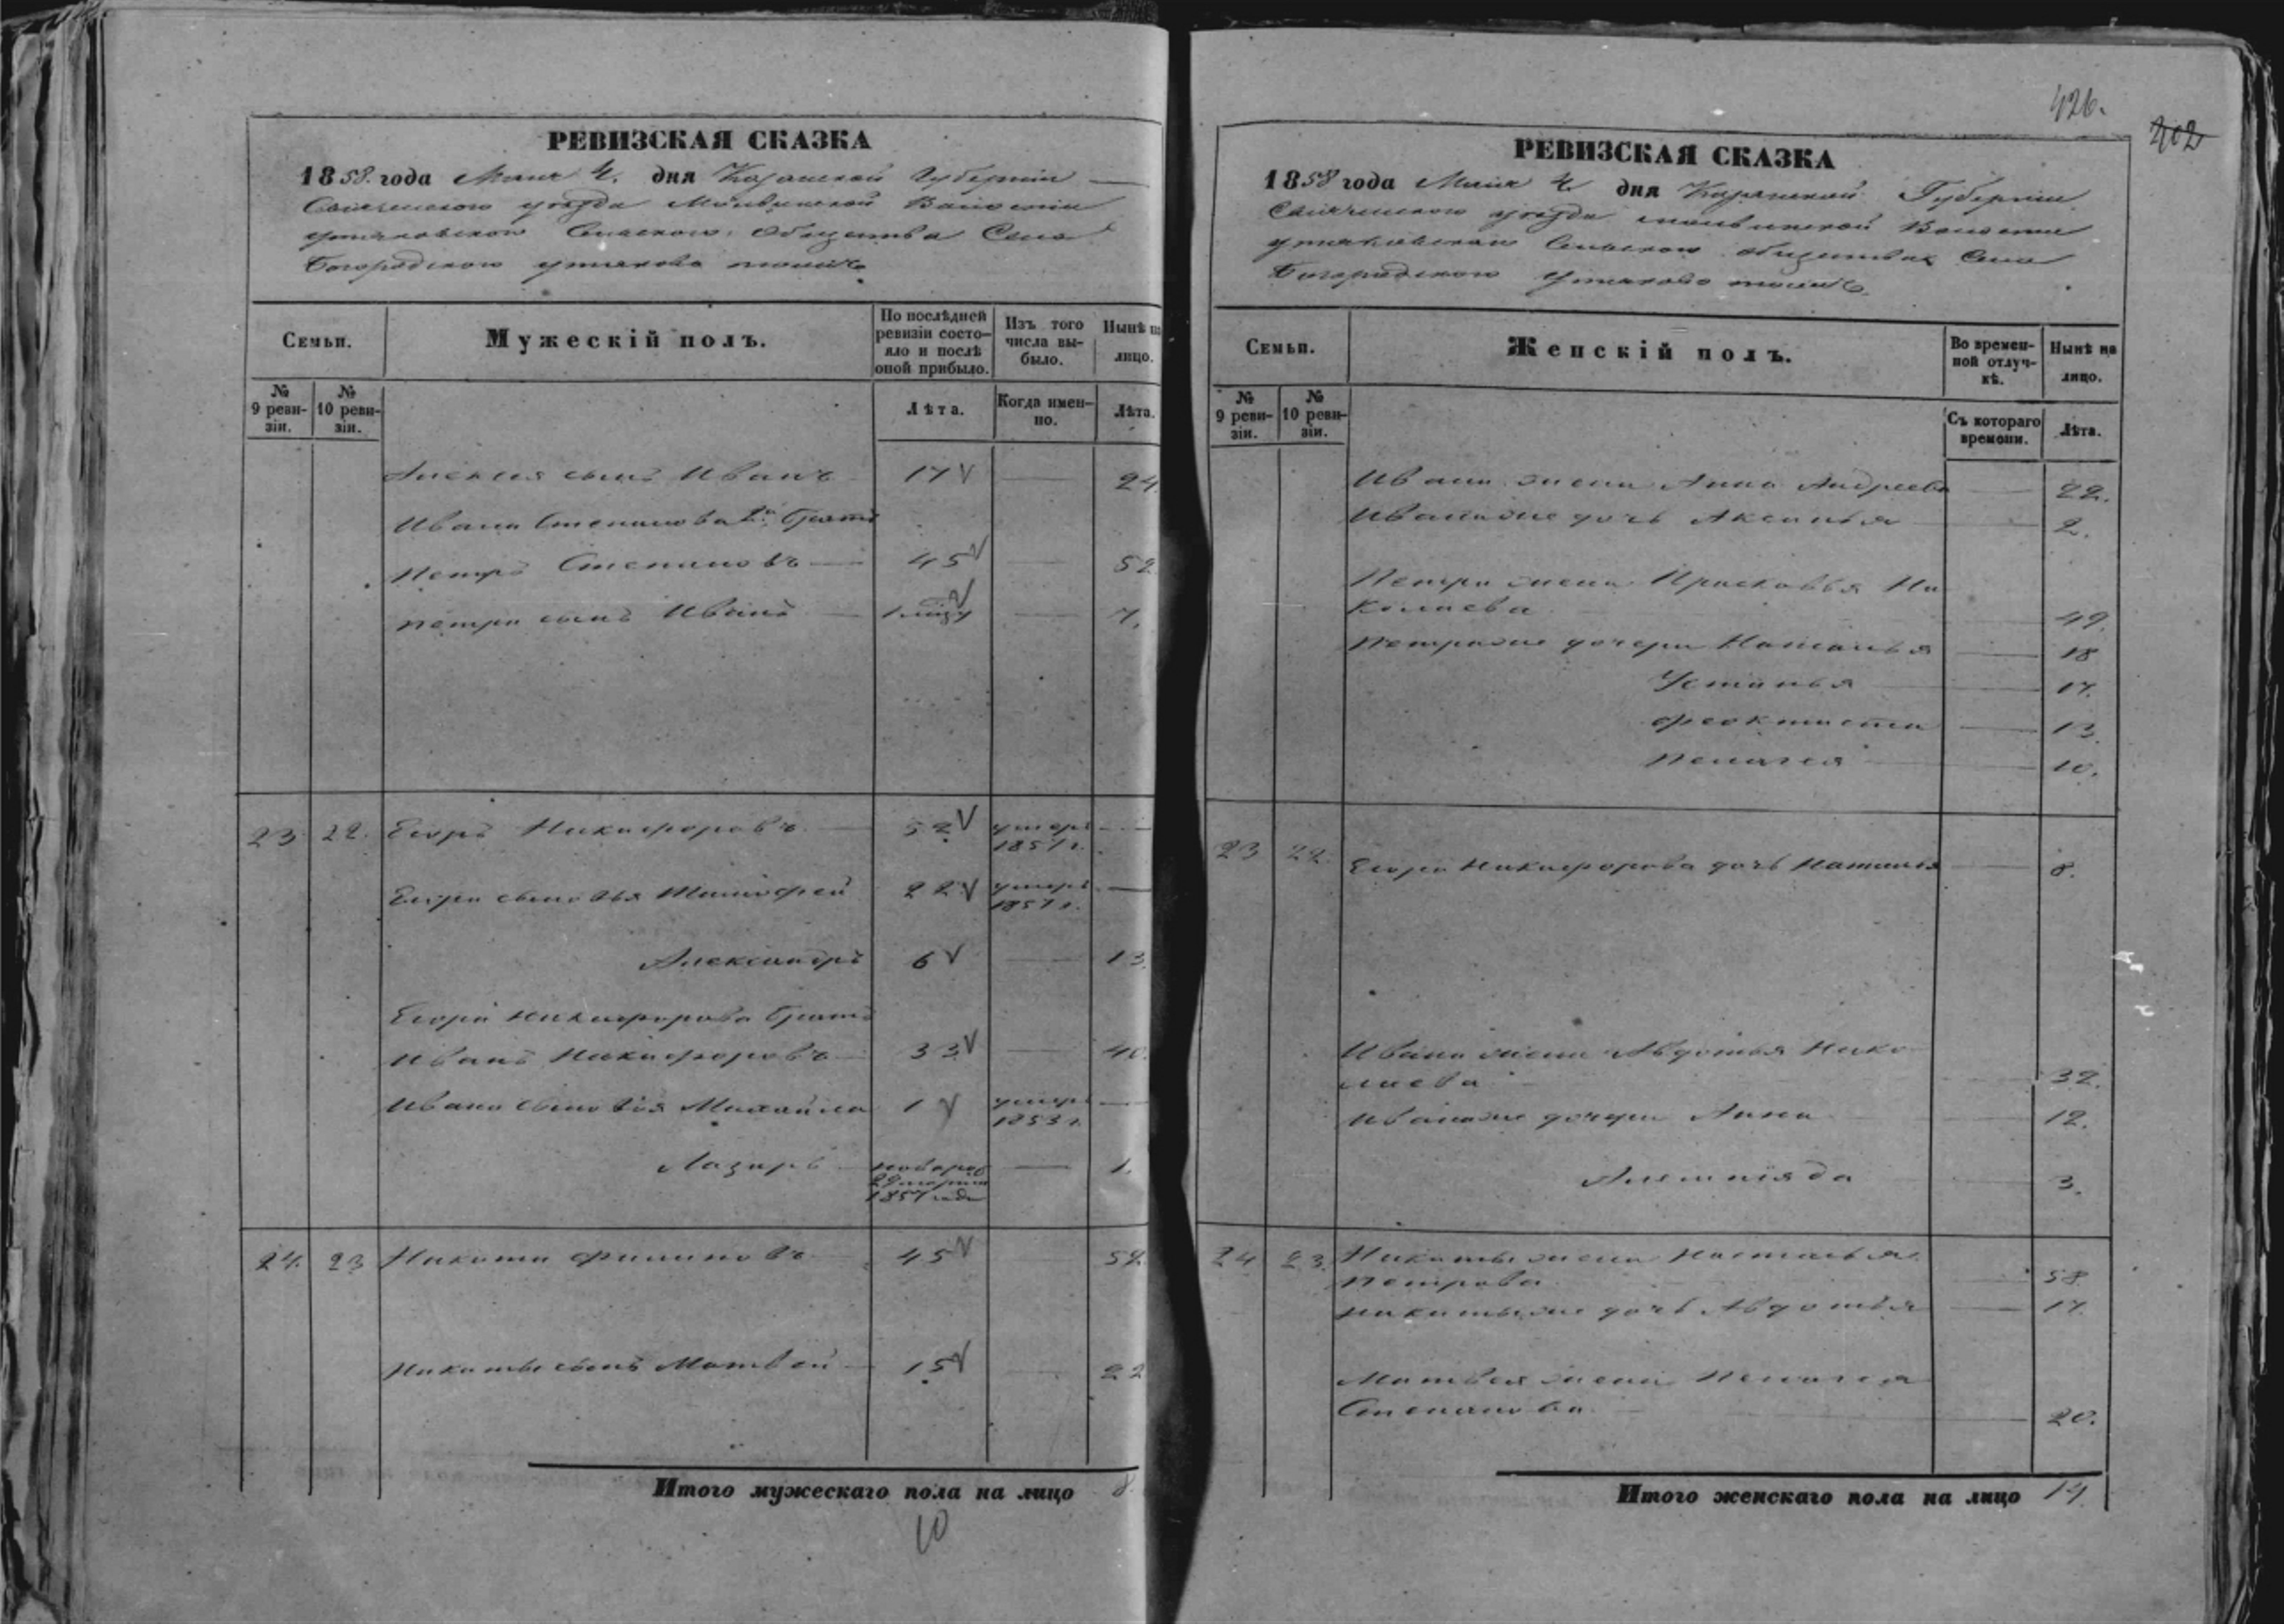 РЕВИЗСКАЯ СКАЗКА
1858. года Мая 4. дня Казанской Губерніи
уѣзда Волости
Сельскаго Общества Села
Богородскаго тожъ
Семьи.
Мужескій полъ.
По послѣдней ревизіи состояло и послѣ оной прибыло.
Изъ того числа выбыло.
Нынѣ на лицо.
№ 9 ревизіи.
№ 10 ревизіи.
Лѣта.
Когда именно.
Лѣта.
Алексея сынъ Иванъ 17 24
Ивана Степанова 2й братъ
Петръ Степановъ 45 52
Петра сынъ Иванъ 7.
23 22. Егоръ Никифоровъ 52 умеръ 1857 г.
Егора сыновья Тимофей 22 умеръ 1857 г.
Александръ 6 13.
Егора Никифорова братъ
Иванъ Никифоровъ 33 40.
Ивана сыновья Михайла 1 умеръ 1853 г.
Лазарь новорож 1857 года 1.
24. 23 Никита Филиповъ 45 52
Никиты сынъ Матвей 15 22
Итого мужескаго пола на лицо 8.
10
426.
202
РЕВИЗСКАЯ СКАЗКА
1858 года Мая 4. дня Казанской Губерніи
уѣзда Волости
Сельскаго общества Села
Богородскаго тожъ
Семьи.
Женскій полъ.
Во временной отлучкѣ.
Нынѣ на лицо.
№ 9 ревизіи.
№ 10 ревизіи.
Съ котораго времени.
Лѣта.
Ивана жена Анна Андреева 22.
Иванаже дочь Аксинья 2.
Петра жена Прасковья Ни
колаева 49.
Петраже дочери Наталья 18
Устинья 17.
Феоктиста 13.
Пелагея 10.
23 22. Егора Никифорова дочь Наталья 8.
Ивана жена Авдотья Нико
лаева 32.
Иванаже дочери Анна 12.
3.
24 23. Никиты жена Настасья
Петрова 58.
Никитыже дочь Авдотья 17.
Матвея жена Пелагея
Степанова 20.
Итого женскаго пола на лицо 14.